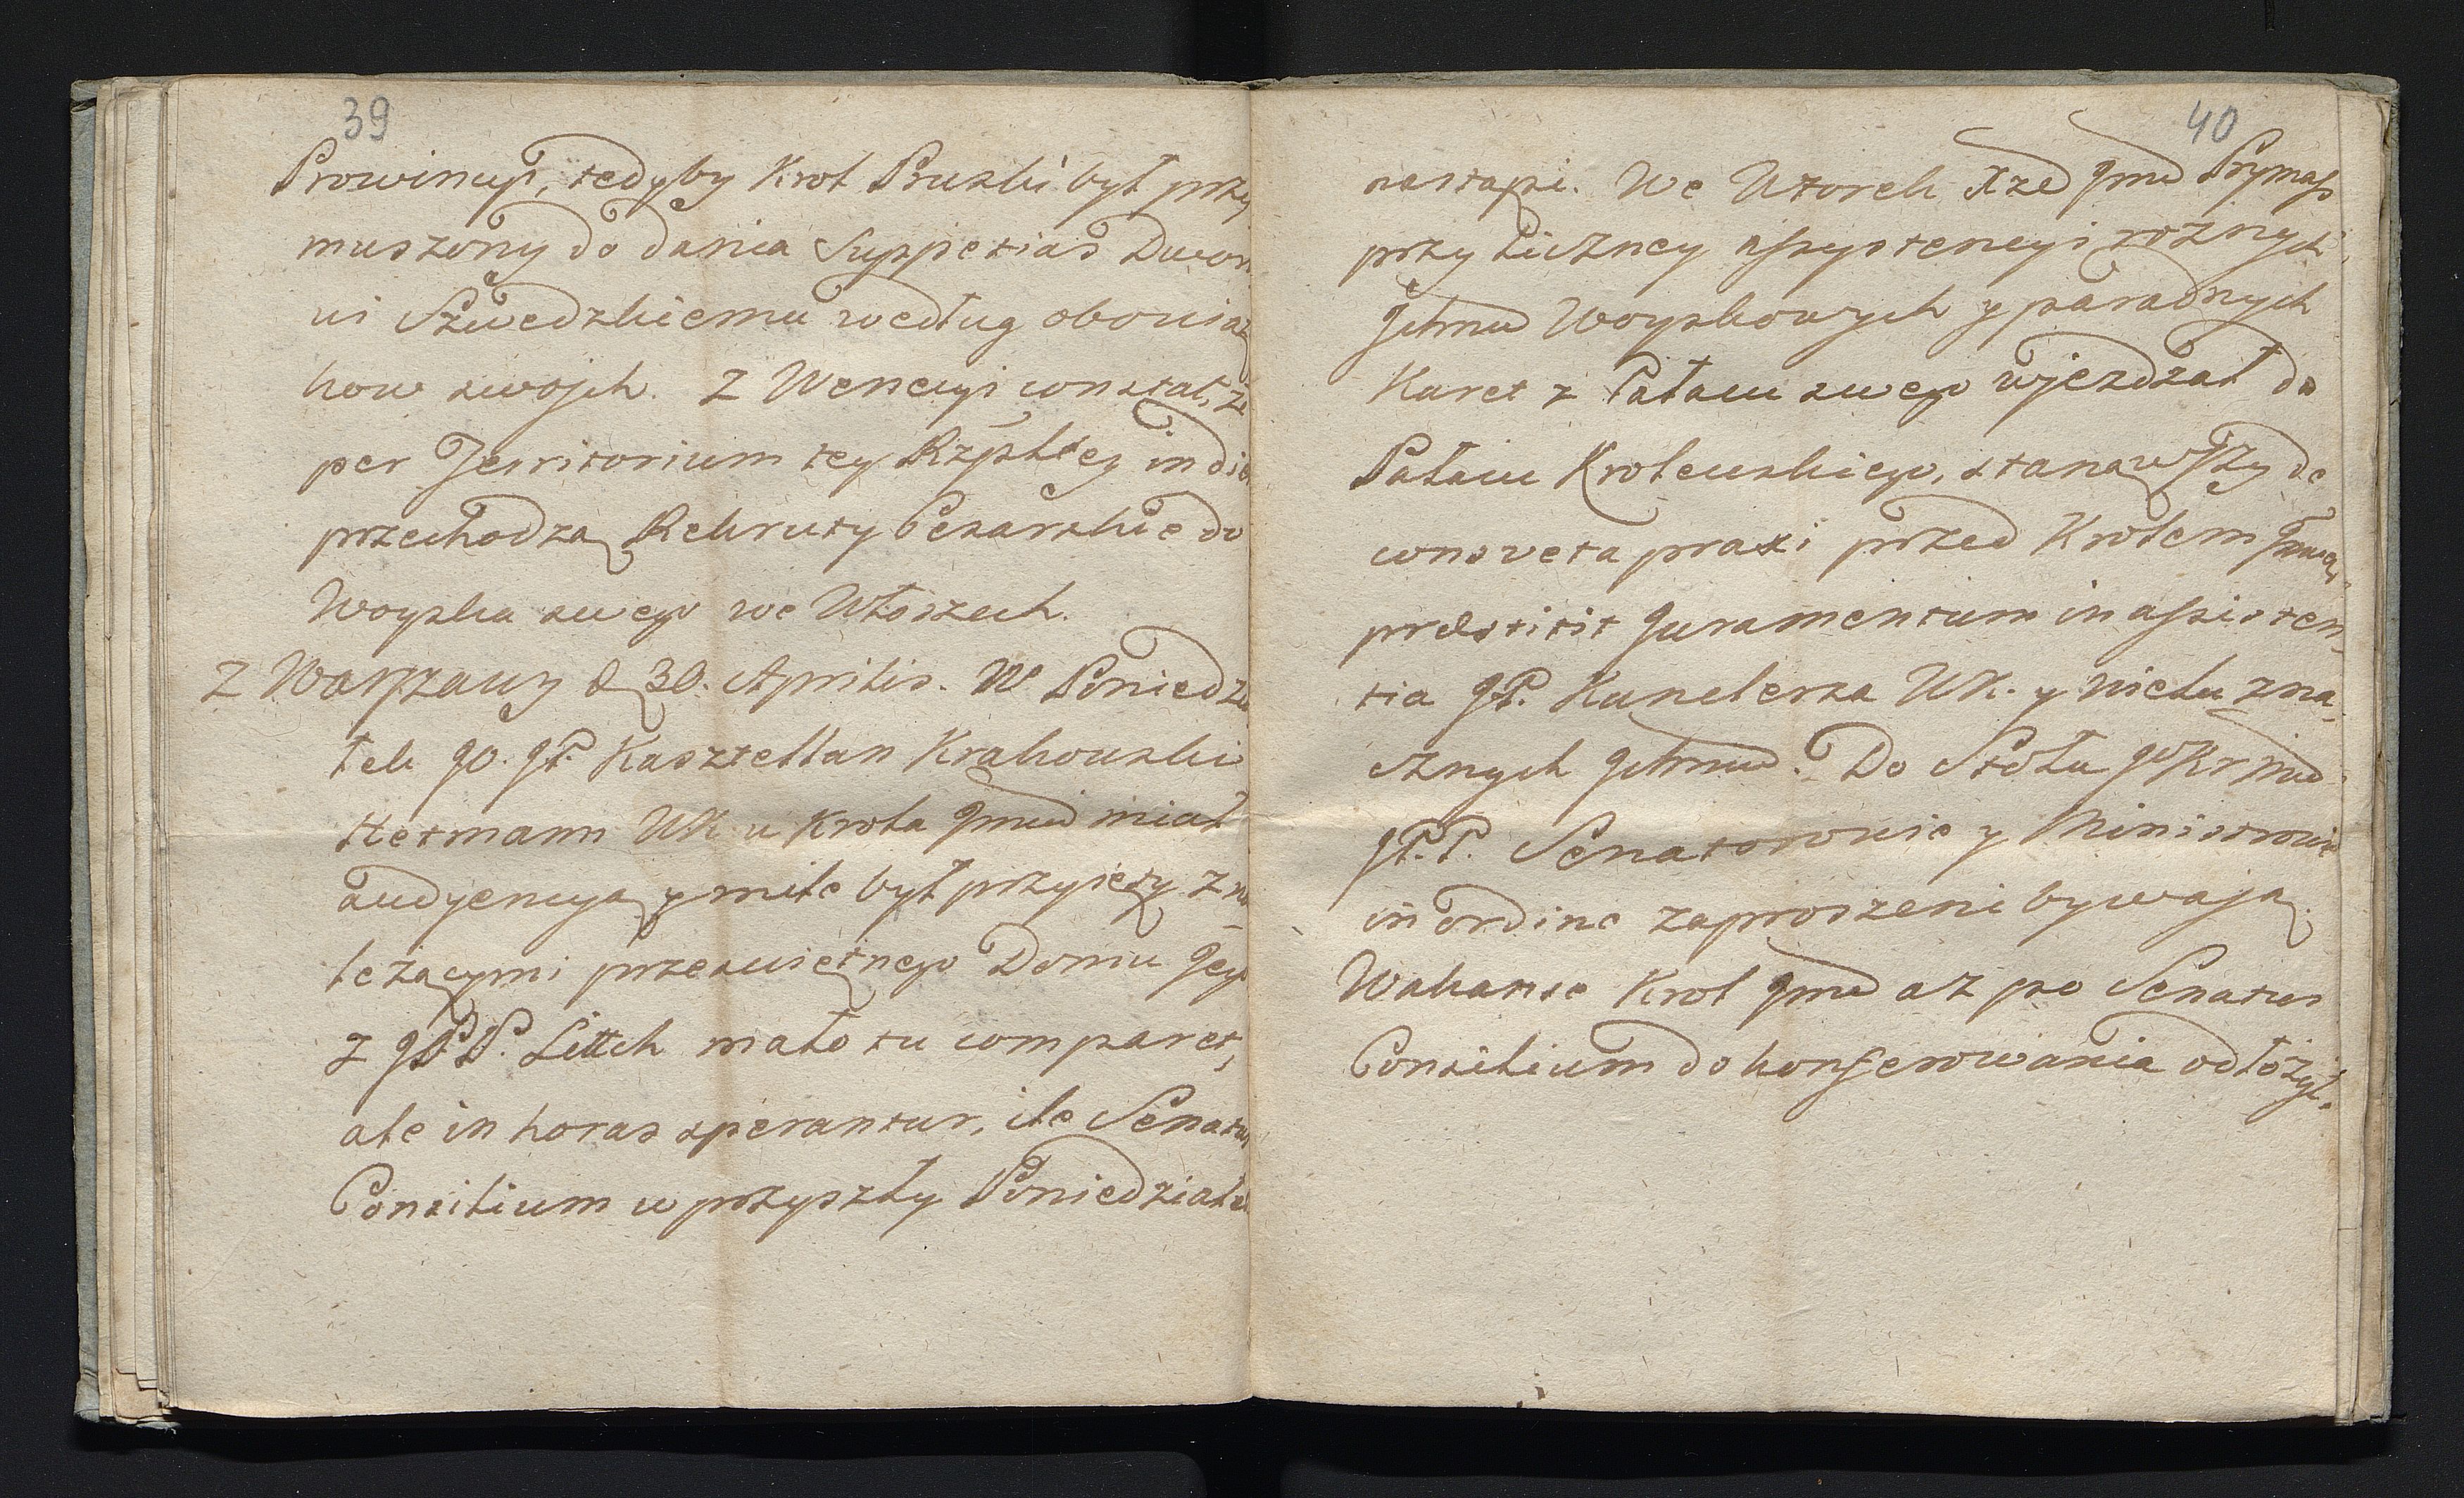 39
Prowincyi, tedyby Krol Pruski był przy
muszony do dania Suppetias Dwor
wi Szwedzkiemu według obowiąz
kow swojch. Z Wenecyi constat, że
per Territorium tey Rzpltey in dies
przechodzą Rekruty Cesarskie do
Woyska swego we Włoszech.
Z Warszawy d 30. Aprilis. W Poniedzia
łek JO. JP. Kasztellan Krakowski
Hetmann WK u Krola Jmci miał
audyencyą y mile był przyięty z na
leżącymi przeswietnego Domu Jego
z JPP. Littch mało tu comparet,
ale in horas sperantur, ile Senatus
Consilium w przyszły Poniedziałek
40
nastąpi. We Wtorek Xże Jmć Prymass
przy liczney assystencyi rożnych
Jchmć Woyskowych y paradnych
Karet z Pałacu swego wjezdzał do
Pałacu Krolewskiego, stanąwszy de
consveta praxi przed Krolem Jmcią,
prestitit Juramentum in assisten,
tia JP. Kanclerza WK. y wielu zna,
cznych Jchmć. Do Stołu JKrmć
JP.P. Senatorowie y Ministrowie
in ordine zaproszeni bywają.
Wakanse Krol Jmć aż po Senatus
Consilium do konferowania odłożył.